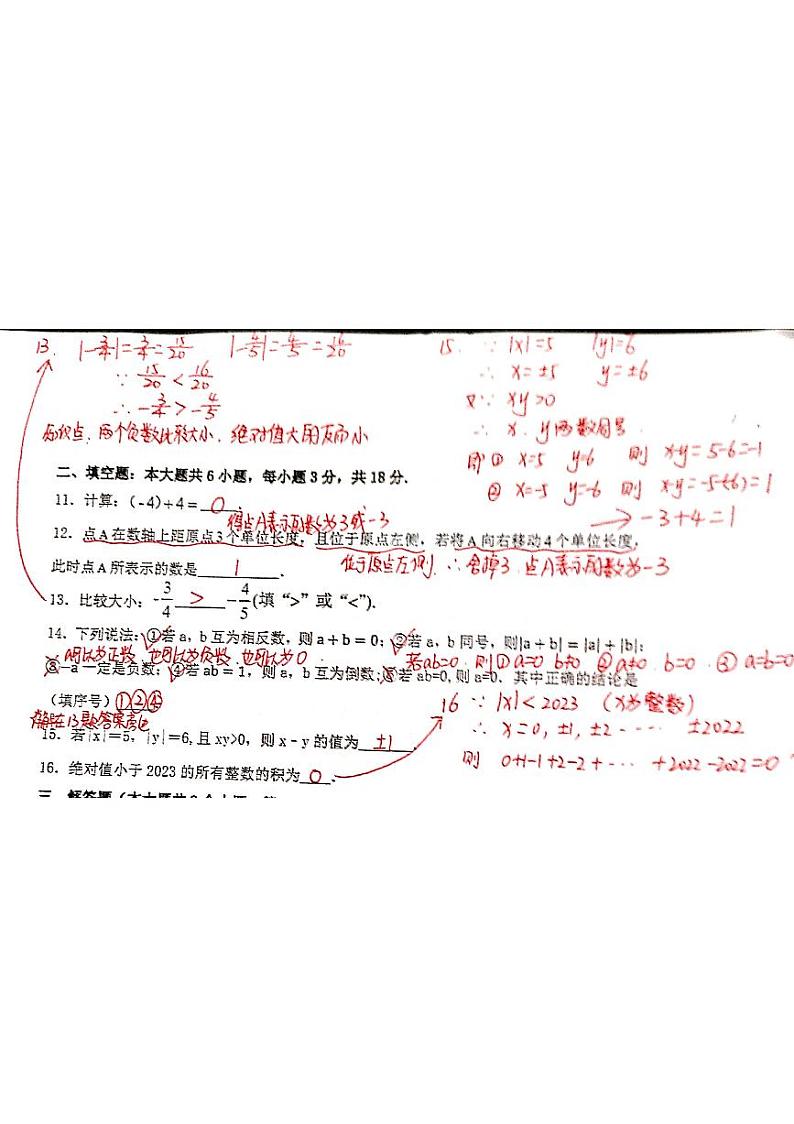 13. |-3/4|=3/4=15/20 |-4/5|=4/5=16/20
∵ 15/20 < 16/20
∴ -3/4 > -4/5
知识点：两个负数比较大小，绝对值大的反而小
15. ∵ |x|=5 |y|=6
∴ x=±5 y=±6
又∵ xy>0
∴ x、y两数同号
即① x=5 y=6 则 x-y=5-6=-1
② x=-5 y=-6 则 x-y=-5-(-6)=1
二、填空题：本大题共6小题，每小题3分，共18分．
11．计算：(-4)+4= 0 ．
得点A表示的数为3或-3
→ -3+4=1
12．点A在数轴上距原点3个单位长度，且位于原点左侧，若将A向右移动4个单位长度，
此时点A所表示的数是 1 ．
位于原点左侧，∴舍掉3，点A表示的数为-3
13．比较大小：-3/4 > -4/5(填“>”或“<”)．
14．下列说法：①若a，b互为相反数，则a+b=0；②若a，b同号，则|a+b|=|a|+|b|；
a可以为正数，也可以为负数，也可以为0
若ab=0，则①a=0 b≠0 ②a≠0，b=0 ③a=b=0
③-a一定是负数；④若ab=1，则a，b互为倒数；⑤若ab=0，则a=0．其中正确的结论是
(填序号)①②④
15．若|x|=5，|y|=6，且xy>0，则x-y的值为 ±1 ．
16．绝对值小于2023的所有整数的积为 0 ．
16 ∵ |x|<2023 (x为整数)
∴ x=0, ±1, ±2 ······ ±2022
则 0+1-1+2-2+ ··· +2022-2022=0
三、解答题（本大题共